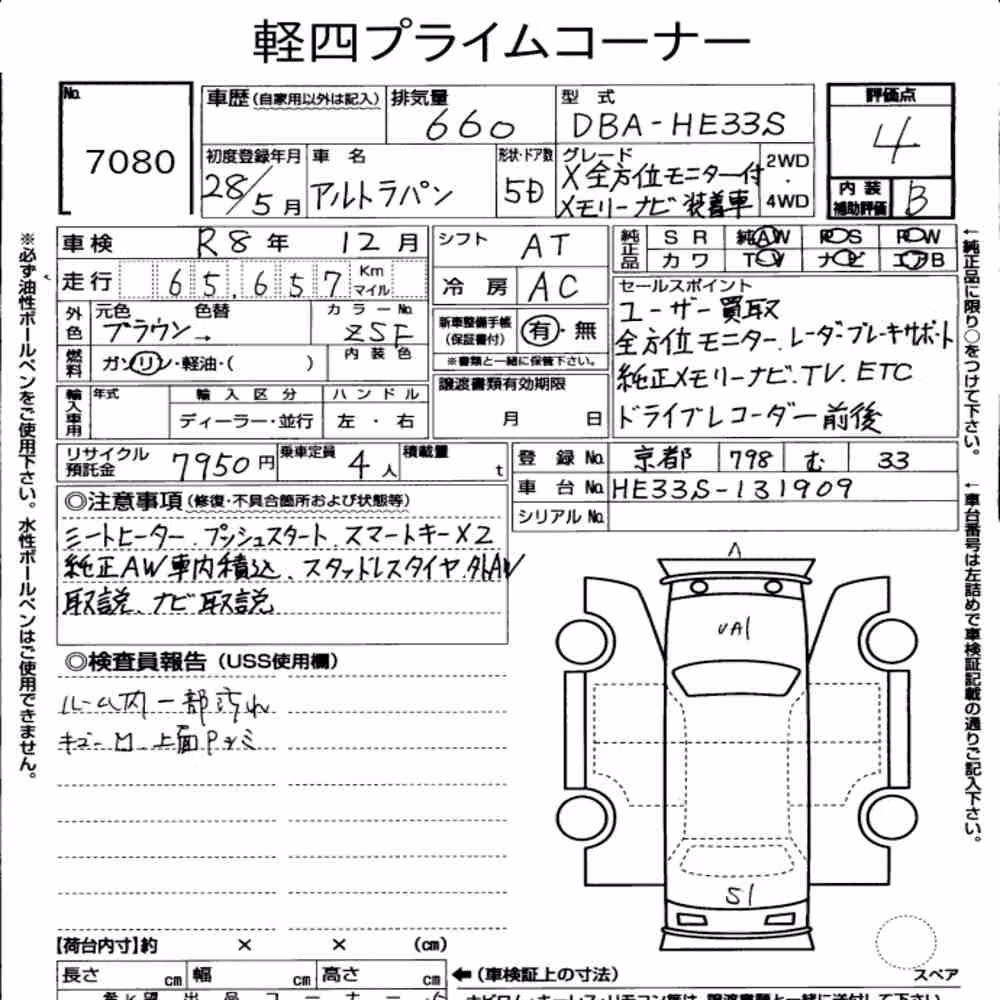 軽四プライムコーナー
No.
7080
車歴 (自家用以外は記入)
排気量
660
型式
DBA-HE33S
評価点
4
初度登録年月
28/5月
車名
アルトラパン
形状・ドア数
5D
グレード
X 全方位モニター付
メモリーナビ装着車
2WD
・
4WD
内装
補助評価
B
車検 R8年 12月
シフト AT
純正品
SR 純AW PS PW
カワ TV ナビ エアB
走行 65,657 Km
マイル
冷房 AC
外色
元色 色替
ブラウン→
カラーNo.
ZSF
新車整備手帳
(保証書付)
有・無
※書類と一緒に保管下さい。
セールスポイント
ユーザー買取
全方位モニター.レーダーブレーキサポート
純正メモリーナビ.TV.ETC
ドライブレコーダー前後
燃料
ガソリン・軽油・( )
内装色
譲渡書類有効期限
月 日
輸入車用
年式
輸入区分
ディーラー・並行
ハンドル
左・右
リサイクル
預託金
7950円
乗車定員
4人
積載量
t
登録No. 京都 798 む 33
車台No. HE33S-131909
シリアルNo.
◎注意事項(修復・不具合箇所および状態等)
シートヒーター.プッシュスタート.スマートキーX2
純正AW車内積込、スタッドレスタイヤ.外AW
取説、ナビ取説
◎検査員報告(USS使用欄)
ルーム内一部汚れ
上面
UA1
S1
【荷台内寸】約 × × (cm)
長さ cm 幅 cm 高さ cm
←(車検証上の寸法)
スペア
※必ず油性ボールペンをご使用下さい。水性ボールペンはご使用できません。
←純正品に限り○をつけて下さい。
←車台番号は左詰めで車検証記載の通りご記入下さい。